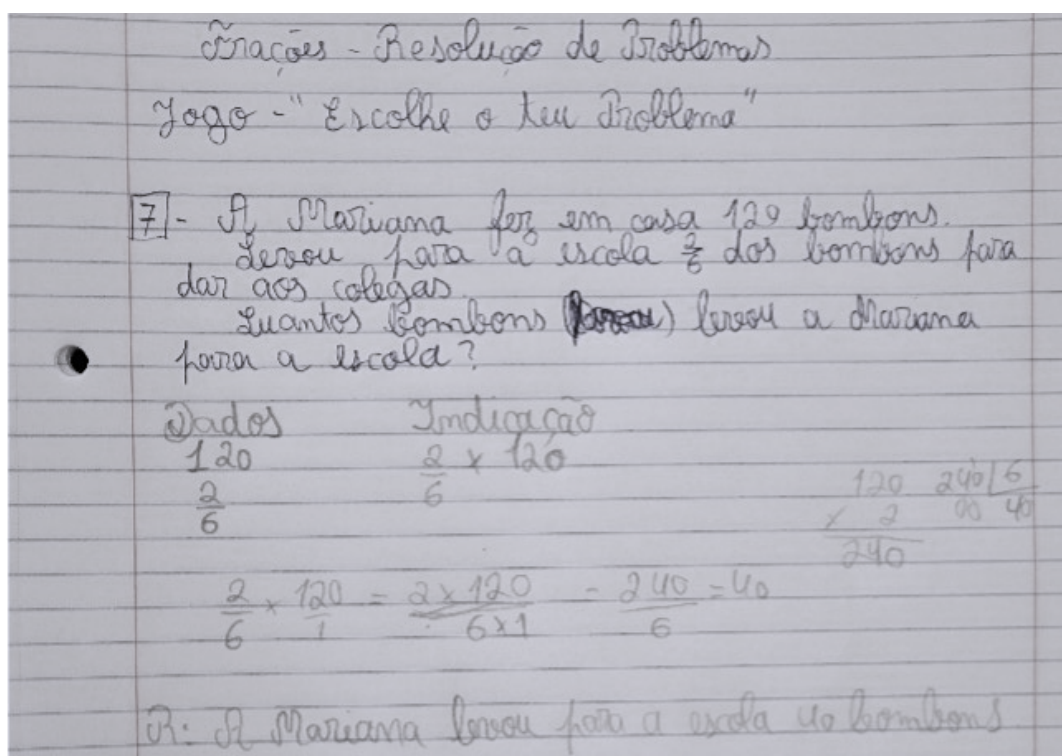 Frações - Resolução de Problemas
Jogo - "Escolhe o teu Problema"
7 - A Mariana fez em casa 120 bombons.
Levou para a escola 2/6 dos bombons para
dar aos colegas.
Quantos bombons levou a Mariana
para a escola?
Dados Indicação
120 2/6 x 120
2/6
120 240 | 6
x 2 00 40
240
2/6 x 120/1 = 2 x 120/6 x 1 = 240/6 = 40
R: A Mariana levou para a escola 40 bombons